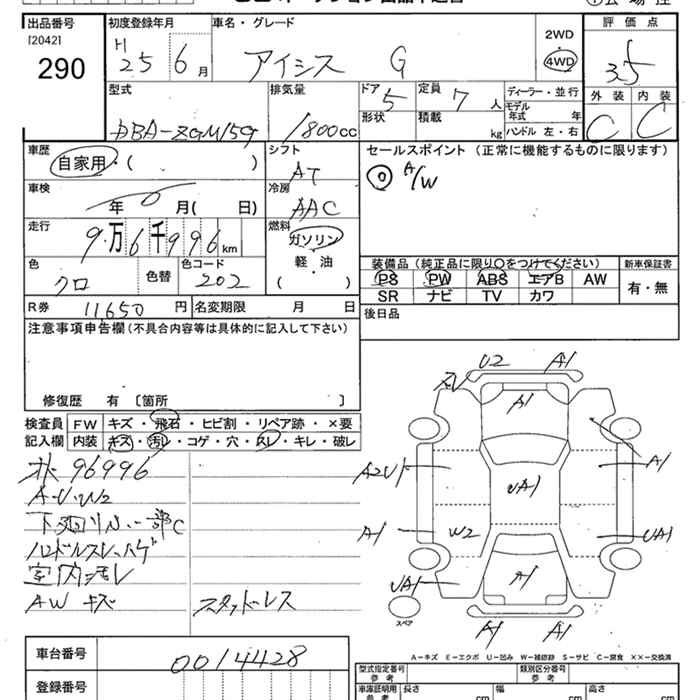 出品番号 初度登録年月 車名・グレード 2WD 評価点
[2042] H 25 6月 アイシス G 4WD 3.5
290
型式 排気量 ドア 5 定員 7人 ディーラー・並行 外装 内装
DBA-ZGM15G 1800cc 形状 積載 kg モデル年式 年 C C
ハンドル 左・右
車歴 シフト セールスポイント(正常に機能するものに限ります)
自家用・( ) AT A/W
車検 冷房
年 6 月( 日) AAC
走行 燃料
9万6千996km ガソリン
軽・油
( )
色 色替 色コード 装備品(純正品に限り○をつけてください) 新車保証書
クロ 202 PS PW ABS エアB AW 有・無
SR ナビ TV カワ
R券 11650円 名変期限 月 日 後日品
注意事項申告欄(不具合内容等は具体的に記入して下さい)
修復歴 有 〔箇所 〕
検査員 FW キズ・飛石・ヒビ割・リペア跡・×要
記入欄 内装 キズ・汚レ・コゲ・穴・スレ・キレ・破レ
96996
A・U・W2
ハンドルスレ・ハゲ
室内汚レ
AW キズ スタッドレス
U2 A1
A1
A2U1 A1
UA1
A1 W2 UA1
UA1 A1
スペア
A1 A1
A-キズ E-エクボ U-凹み W-補修跡 S-サビ C-腐食 ××-交換済
車台番号 0014428
登録番号
型式指定番号 参考 類別区分番号 参考
車庫証明用 参考 長さ cm 幅 cm 高さ cm